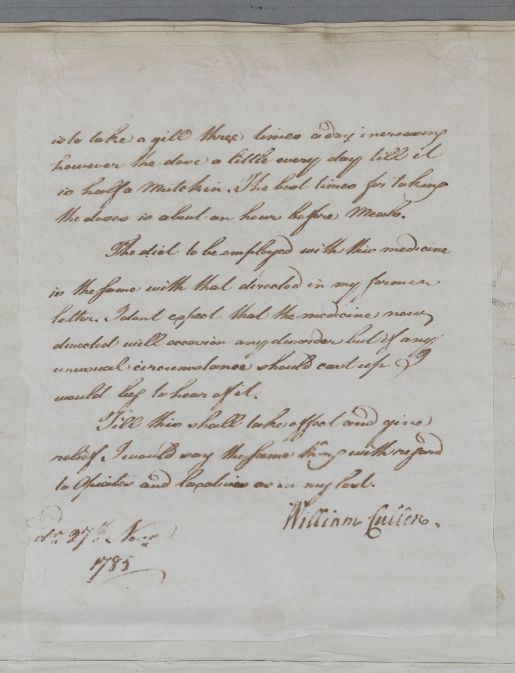 is to take a gill three times a day increasing
however the dose a little every day till it
is half a Mutchin. The best times for taking
the doses is about an hour before Meals.
The diet to be employed with this medicine
is the same with that directed in my former
letter. I dont expect that the medicine now
directed will occasion any disorder but if any
unusual circumstance should cast up I
would beg to hear of it.
Till this shall take effect and give
relief I would say the same thing with regard
to Opiates and laxatives as in my last.
William Cullen.
27th Novr
1785